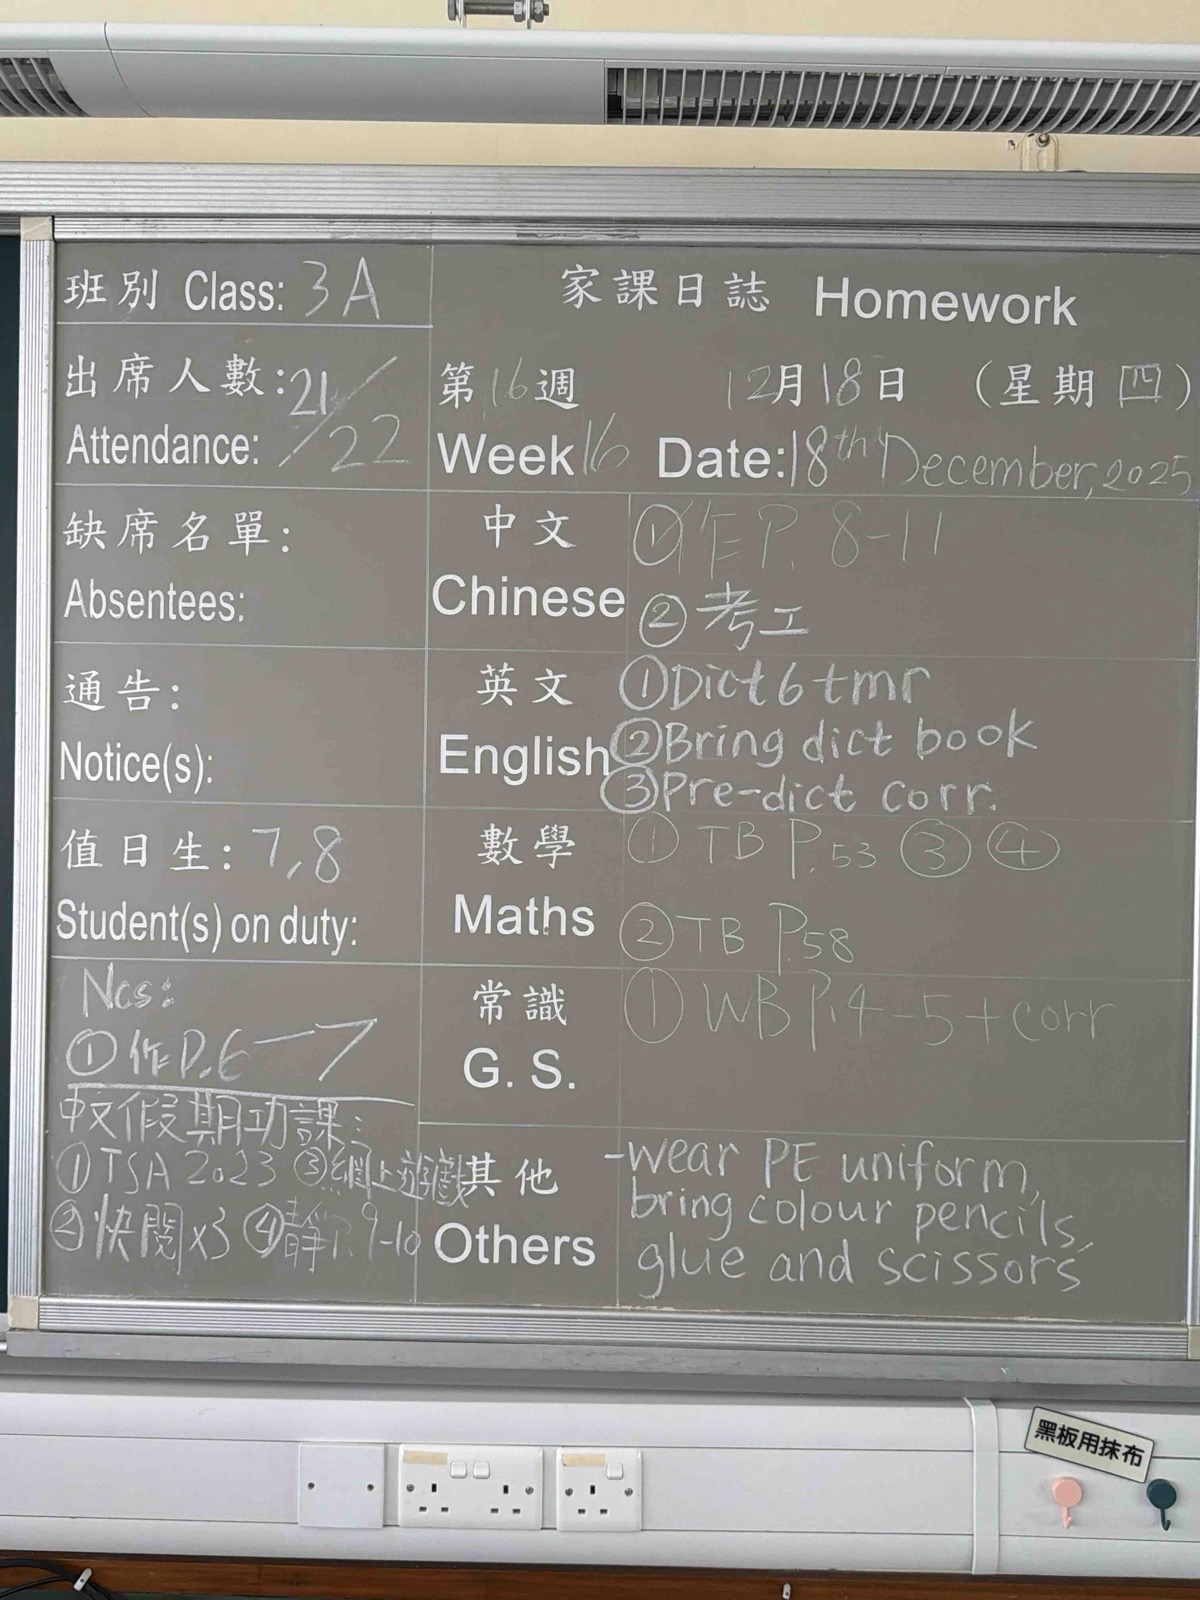 班別 Class: 3A
家課日誌 Homework
出席人數: 21/22
Attendance:
第16週 12月18日 (星期四)
Week 16 Date: 18th December, 2025
缺席名單:
Absentees:
中文
Chinese
①作 P. 8-11
②考工
通告:
Notice(s):
英文
English
①Dict 6 tmr
②Bring dict book
③Pre-dict corr.
值日生: 7,8
Student(s) on duty:
數學
Maths
① TB P.53 ③ ④
② TB P.58
Ncs:
①作P.6-7
常識
G. S.
① WB P.4-5 + corr
中文假期功課:
①TSA 2023 ③網上遊戲
②快閱x3 ④靜 9-10
其他
Others
-wear PE uniform,
bring colour pencils,
glue and scissors
黑板用抹布